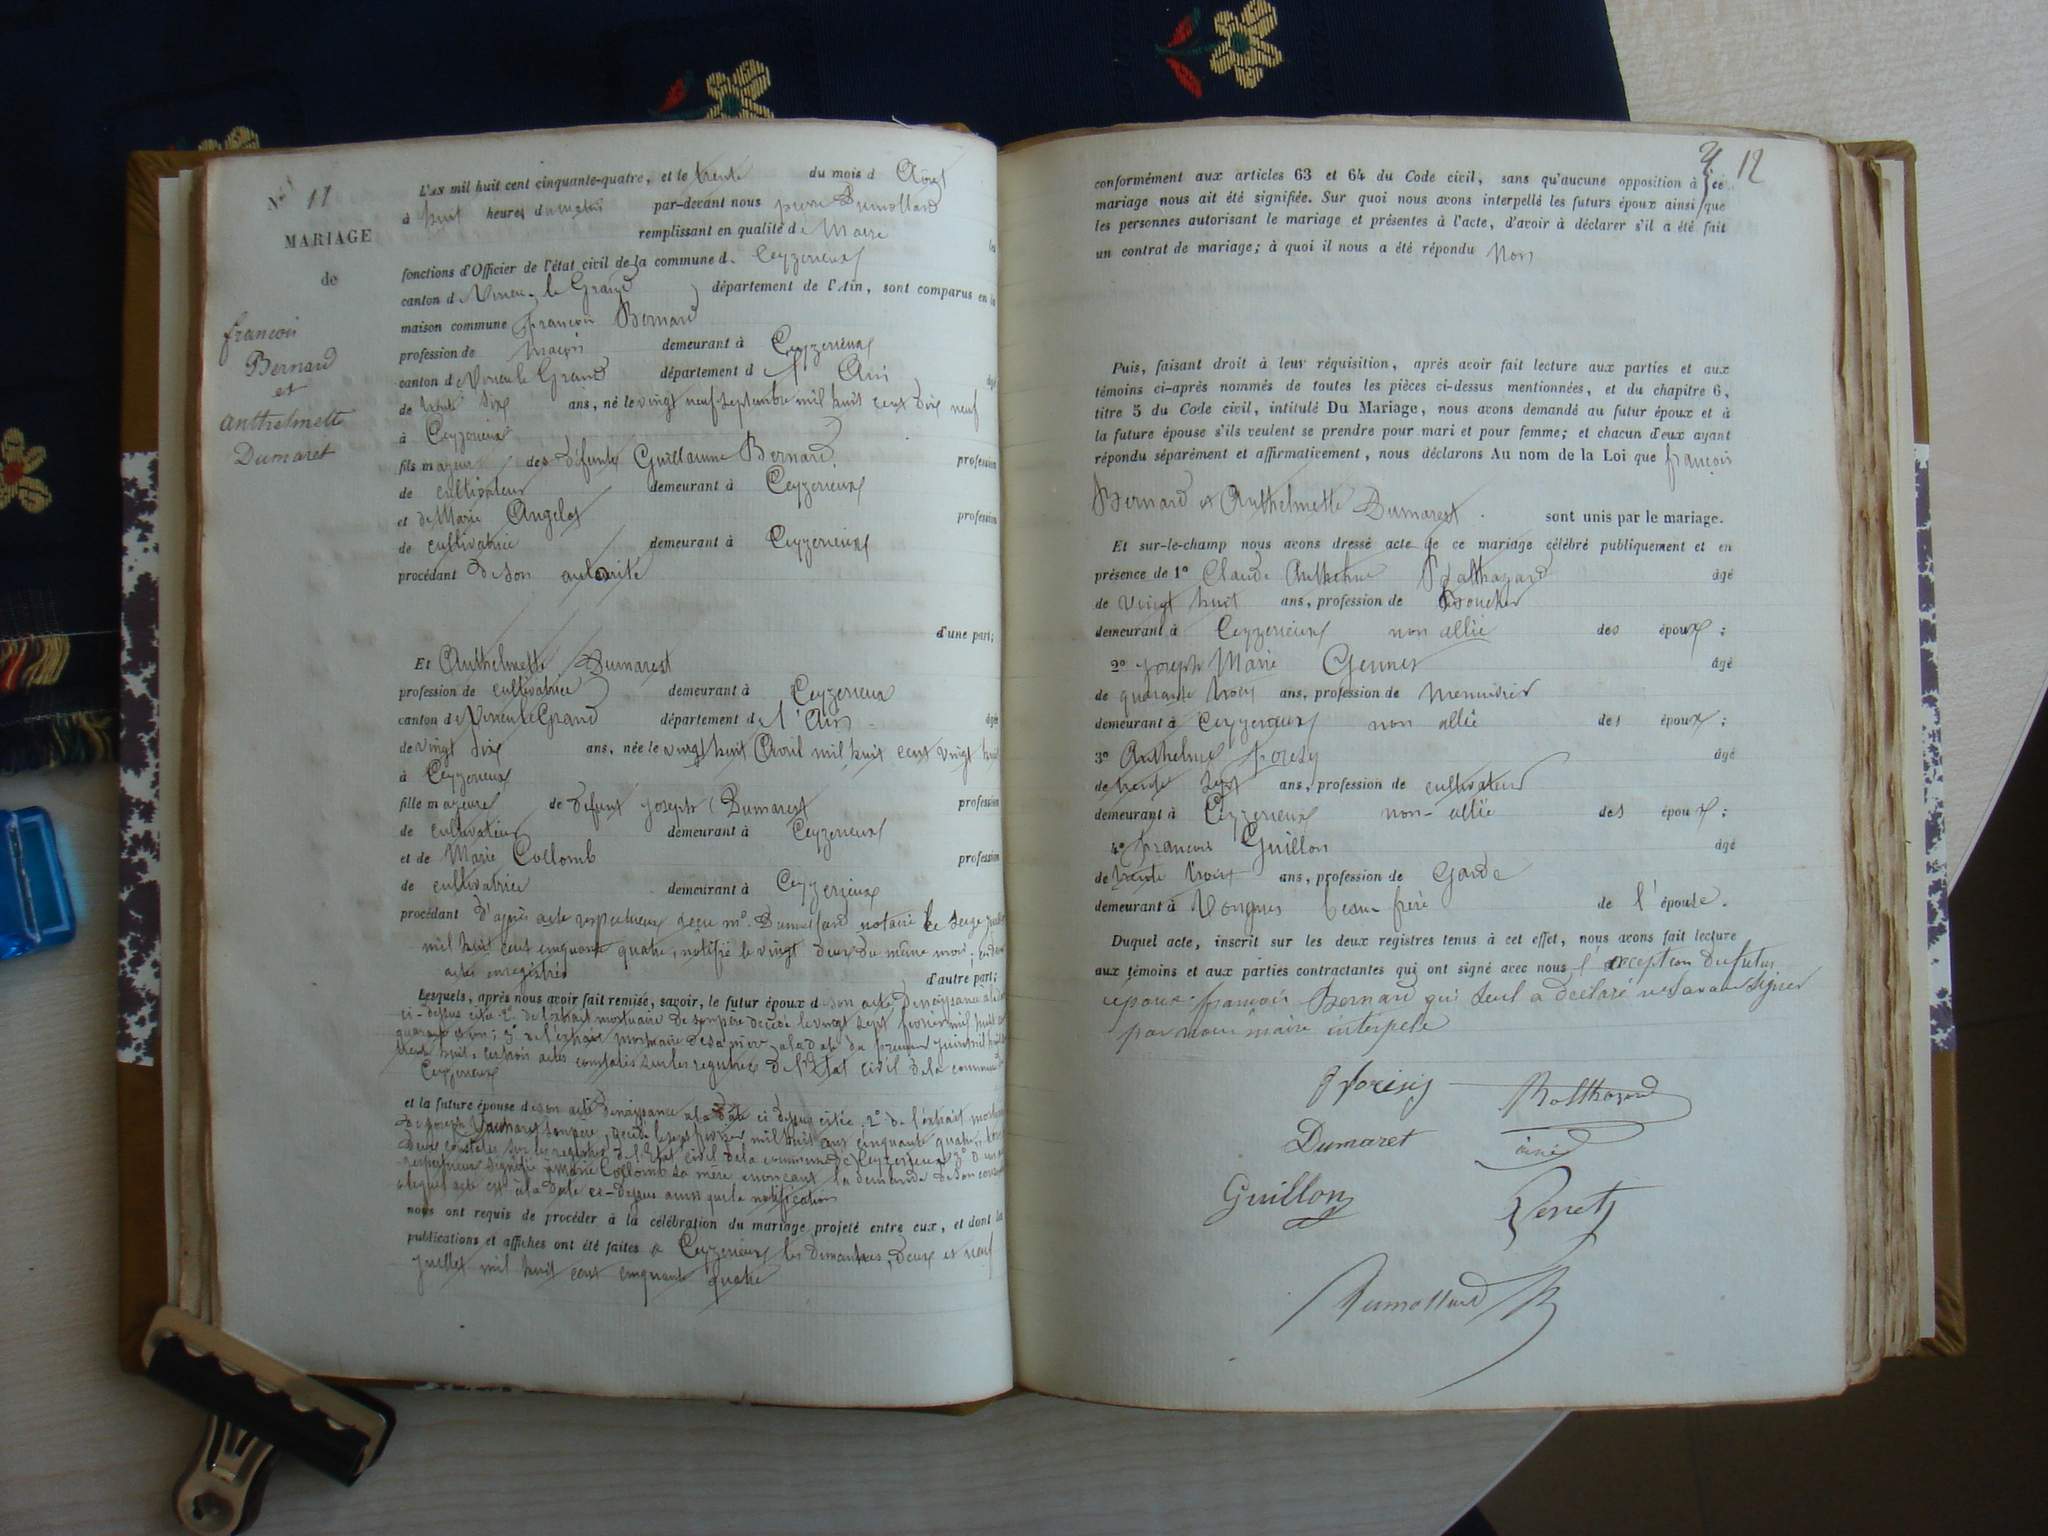 N° 11
MARIAGE
de
françois
Bernard
et
Anthelmette
Dumaret
L'AN mil huit cent cinquante-quatre, et le trente du mois d Aout
à huit heures du matin par-devant nous pierre Dumollard
remplissant en qualité de Maire les
fonctions d'Officier de l'état civil de la commune d. Ceyzerieux
canton de Virieu-le Grand département de l'Ain, sont comparus en la
maison commune françois Bernard
profession de maçon demeurant à Ceyzerieux
canton de Virieu le Grand département de l'Ain âgé
de trente six ans, né le vingt neuf septembre mil huit cent dix neuf
à Ceyzerieux
fils majeur des défunts Guillaume Bernard profession
de cultivateur demeurant à Ceyzerieux
et de Marie Angelot profession
de cultivatrice demeurant à Ceyzerieux
procédant de son autorité
d'une part;
Et Anthelmette Dumarest
profession de cultivatrice demeurant à Ceyzerieux
canton de Virieu le Grand département de l'Ain âgée
de vingt six ans, née le vingt huit Avril mil huit cent vingt huit
à Ceyzerieux
fille majeure de défunt joseph Dumarest profession
de cultivateur demeurant à Ceyzerieux
et de Marie Collomb profession
de cultivatrice demeurant à Ceyzerieux
procédant d'après acte respectueux reçu me. Dumollard notaire le seize juillet
mil huit cent cinquante quatre, notifié le vingt deux du même mois;
actes enregistrés
d'autre part;
Lesquels, après nous avoir fait remise, savoir, le futur époux de son acte de naissance à la date
ci-dessus citée 2° de l'extrait mortuaire de son père décédé le vingt sept février mil huit cent
quarante 3° de l'extrait mortuaire de sa mère à la date du premier juin mil huit cent
trente huit. ces trois actes constatés sur les registres de l'Etat civil de la commune de
Ceyzerieux
et la future épouse de son acte de naissance à la date ci dessus citée, 2° de l'extrait mortuaire
de joseph Dumarest son père, décédé le sept février mil huit cent cinquante quatre,
Deux constatés sur les registres de l'Etat civil de la commune de Ceyzerieux 3° d'un acte
respectueux signifié à Marie Collomb sa mère énonçant la demande de son conseil
lequel acte est à la date ci-dessus ainsi que la notification
nous ont requis de procéder à la célébration du mariage projeté entre eux, et dont les
publications et affiches ont été faites à Ceyzerieux les dimanches, deux et neuf
juillet mil huit cent cinquante quatre
12
conformément aux articles 63 et 64 du Code civil, sans qu'aucune opposition à ce
mariage nous ait été signifiée. Sur quoi nous avons interpellé les futurs époux ainsi que
les personnes autorisant le mariage et présentes à l'acte, d'avoir à déclarer s'il a été fait
un contrat de mariage; à quoi il nous a été répondu Non
Puis, faisant droit à leur réquisition, après avoir fait lecture aux parties et aux
témoins ci-après nommés de toutes les pièces ci-dessus mentionnées, et du chapitre 6,
titre 5 du Code civil, intitulé Du Mariage, nous avons demandé au futur époux et à
la future épouse s'ils veulent se prendre pour mari et pour femme; et chacun d'eux ayant
répondu séparément et affirmativement, nous déclarons Au nom de la Loi que françois
Bernard et Anthelmette Dumarest . sont unis par le mariage.
Et sur-le-champ nous avons dressé acte de ce mariage célébré publiquement et en
présence de 1° Claude Anthelme Balthazard âgé
de vingt huit ans, profession de Boucher
demeurant à Ceyzerieux non allié des époux;
2° joseph Marie Gennet âgé
de quarante trois ans, profession de menuisier
demeurant à Ceyzerieux non allié des époux;
3° Anthelme forisy âgé
de trente sept ans, profession de cultivateur
demeurant à Ceyzerieux non-allié des époux;
4° françois Guillon âgé
de trente trois ans, profession de Garde
demeurant à Vongnes beau-frère de l'épouse.
Duquel acte, inscrit sur les deux registres tenus à cet effet, nous avons fait lecture
aux témoins et aux parties contractantes qui ont signé avec nous à l'exception du futur
époux françois Bernard qui seul a déclaré ne savoir signer
par nous maire interpelé
forisy Balthazard
Dumaret ainé
Guillon
Dumollard